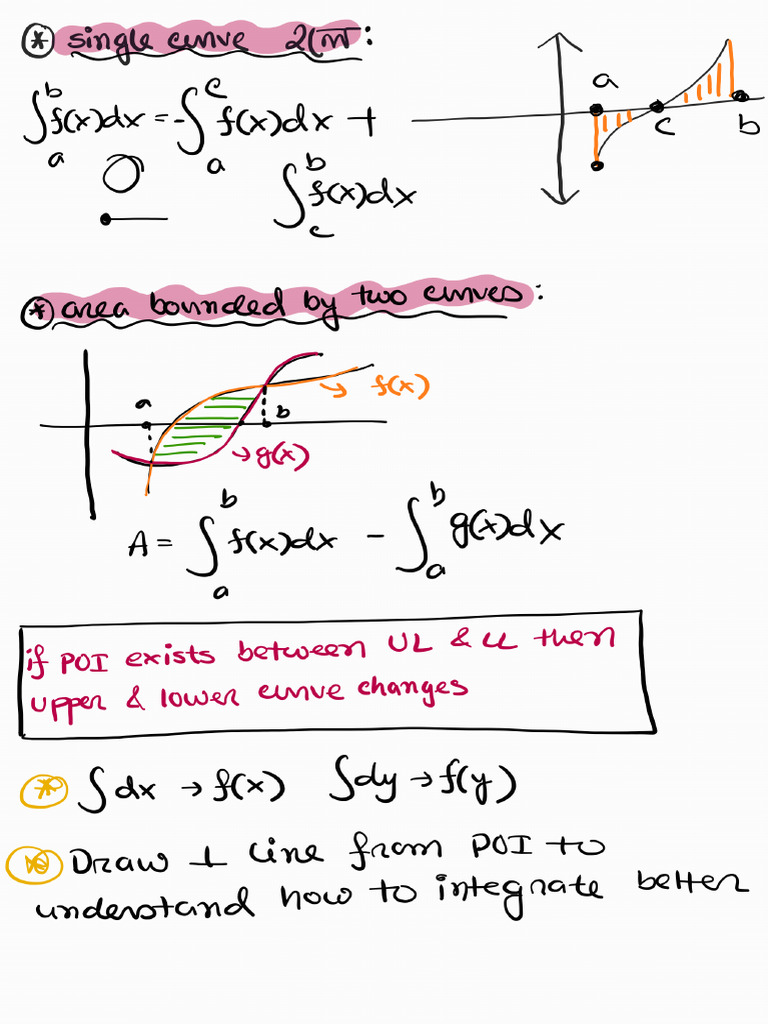 * single curve :
∫ₐᵇ f(x)dx = -∫ₐᶜ f(x)dx +
∫꜀ᵇ f(x)dx
a
c
b
* area bounded by two curves:
a
b
→ f(x)
→ g(x)
A = ∫ₐᵇ f(x)dx - ∫ₐᵇ g(x)dx
if POI exists between UL & LL then
upper & lower curve changes
* ∫dx → f(x) ∫dy → f(y)
* Draw ⊥ line from POI to
understand how to integrate better